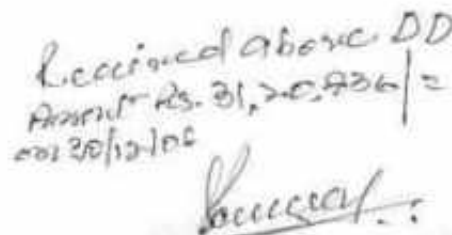 Received above DD
Amount Rs. 31,20,836/=
on 20/12/06